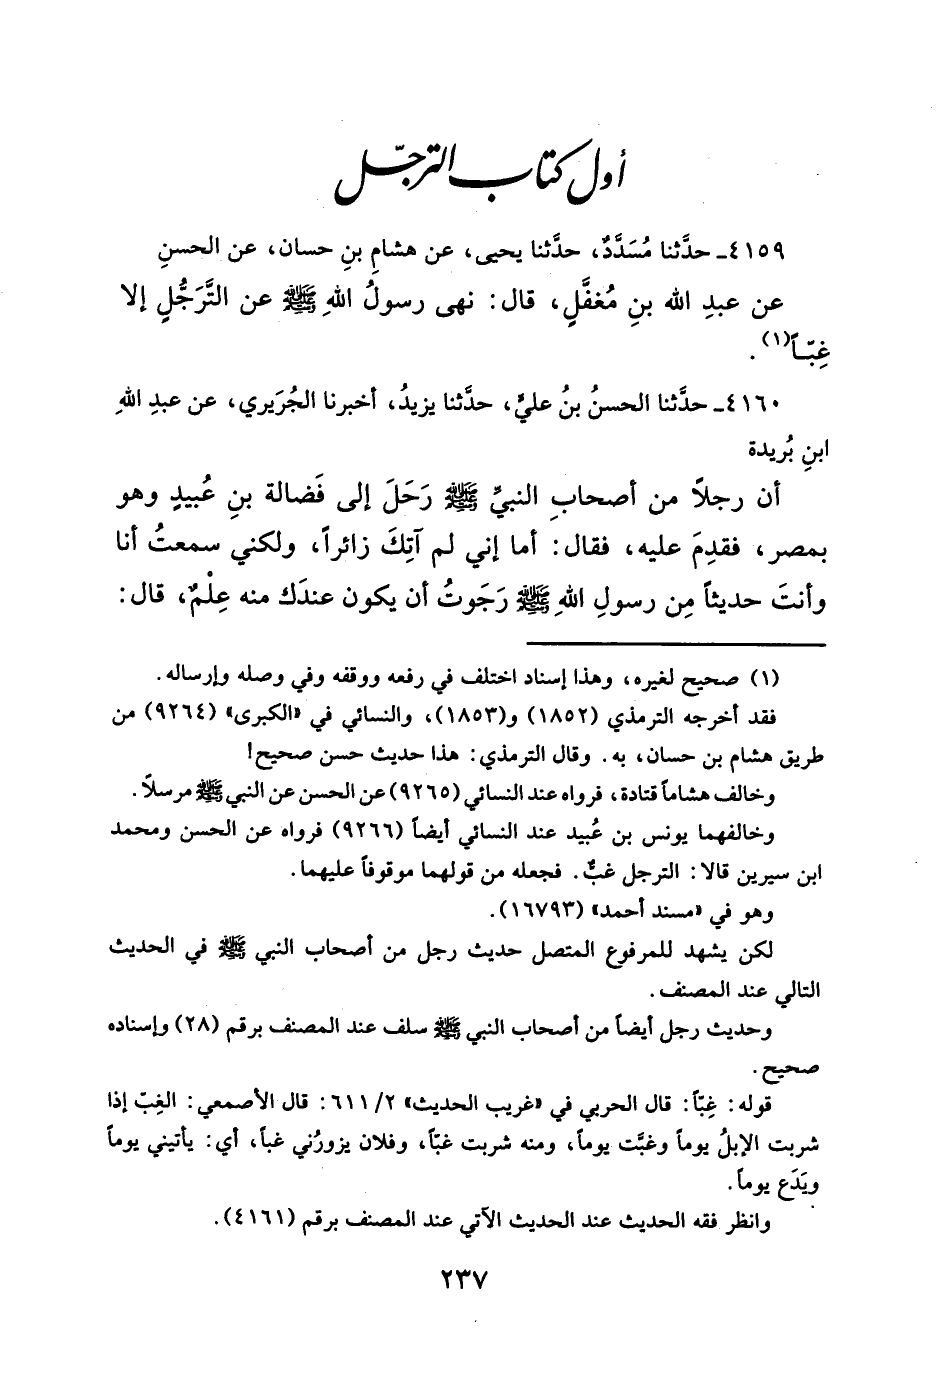 أول كتاب الترجّل
٤١٥٩ـ حدَّثنا مُسَدَّدٌ، حدَّثنا يحيى، عن هشامِ بنِ حسان، عن الحسنِ
عن عبدِ الله بنِ مُغفَّلٍ، قال: نهى رسولُ اللهِ ﷺ عن التَّرَجُّلِ إلا
غِبّاً(١).
٤١٦٠ـ حدَّثنا الحسنُ بنُ عليٍّ، حدَّثنا يزيدُ، أخبرنا الجُرَيري، عن عبدِ اللهِ
ابنِ بُريدة
أن رجلاً من أصحابِ النبيِّ ﷺ رَحَلَ إلى فَضالة بنِ عُبيدٍ وهو
بمصر، فقدِمَ عليه، فقال: أما إني لم آتِكَ زائراً، ولكني سمعتُ أنا
وأنتَ حديثاً مِن رسولِ اللهِ ﷺ رَجَوتُ أن يكون عندَك منه عِلْمٌ، قال:
(١) صحيح لغيره، وهذا إسناد اختلف في رفعه ووقفه وفي وصله وإرساله.
فقد أخرجه الترمذي (١٨٥٢) و(١٨٥٣)، والنسائي في «الكبرى» (٩٢٦٤) من
طريق هشام بن حسان، به. وقال الترمذي: هذا حديث حسن صحيح!
وخالف هشاماً قتادة، فرواه عند النسائي (٩٢٦٥) عن الحسن عن النبي ﷺ مرسلاً.
وخالفهما يونس بن عُبيد عند النسائي أيضاً (٩٢٦٦) فرواه عن الحسن ومحمد
ابن سيرين قالا: الترجل غبٌّ. فجعله من قولهما موقوفاً عليهما.
وهو في «مسند أحمد» (١٦٧٩٣).
لكن يشهد للمرفوع المتصل حديث رجل من أصحاب النبي ﷺ في الحديث
التالي عند المصنف.
وحديث رجل أيضاً من أصحاب النبي ﷺ سلف عند المصنف برقم (٢٨) وإسناده
صحيح.
قوله: غِبّاً: قال الحربي في «غريب الحديث» ٢/ ٦١١: قال الأصمعي: الغِبّ إذا
شربت الإبلُ يوماً وغبَّت يوماً، ومنه شربت غبّاً، وفلان يزورُني غباً، أي: يأتيني يوماً
ويَدَع يوماً.
وانظر فقه الحديث عند الحديث الآتي عند المصنف برقم (٤١٦١).
٢٣٧